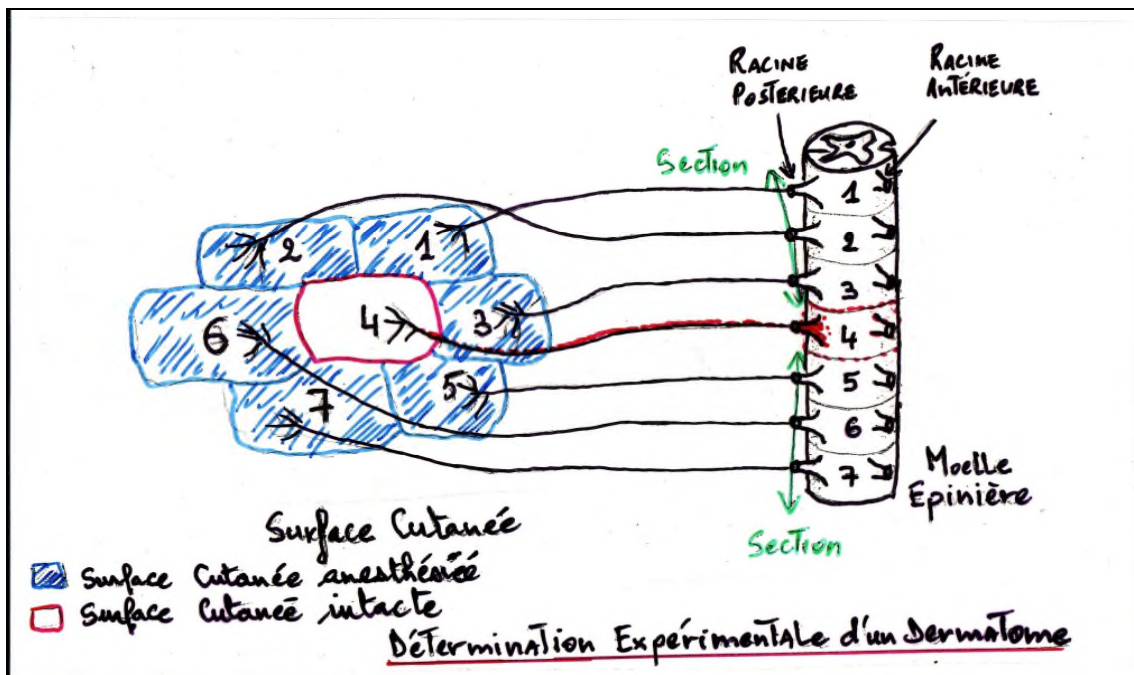 RACINE
POSTERIEURE
RACINE
ANTÉRIEURE
Section
1
2
3
4
5
6
7
2
1
6
4
3
5
7
Moelle
Epinière
Section
Surface Cutanée
Surface Cutanée anesthésiéé
Surface Cutaneé intacte
Détermination Expérimentale d'un Dermatome